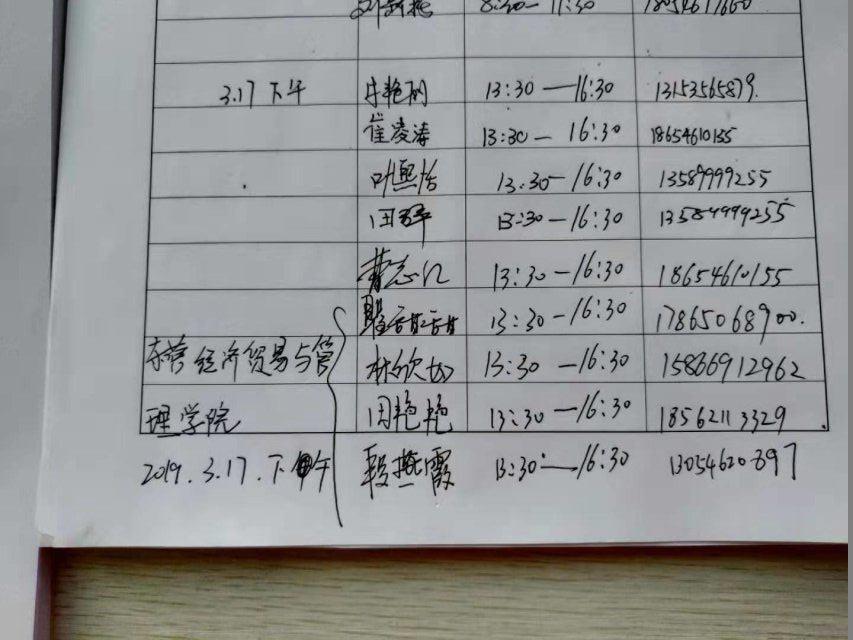 8:30— 11:30
3.17 下午 牛艳丽 13:30 —16:30 13153565879.
崔凌涛 13:30 — 16:30 18654610155
叶熙怡 13:30—16:30 13589999255
田野 13:30—16:30 13589999255
13:30 —16:30 18654610155
甜甜 13:30—16:30 17865068900.
东营经济贸易与管 林欣 13:30 —16:30 15866912962
理学院 周艳艳 13:30 —16:30 18562113329
2019.3.17.下午 段燕霞 13:30—16:30 13054620897